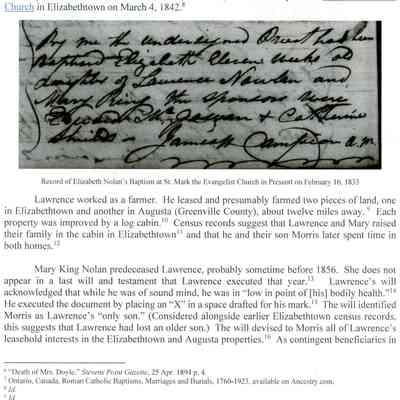 Church in Elizabethtown on March 4, 1842.⁸
By me the undersigned Priest has been
Baptized Elizabeth Eleven weeks old
daughter of Lawrence Nowlen and
Mary King the sponsors were
Edward McGowan & Catherine
Shields. James Campion a.m.
Record of Elizabeth Nolan's Baptism at St. Mark the Evangelist Church in Prescott on February 16, 1833
Lawrence worked as a farmer. He leased and presumably farmed two pieces of land, one
in Elizabethtown and another in Augusta (Greenville County), about twelve miles away.⁹ Each
property was improved by a log cabin.¹⁰ Census records suggest that Lawrence and Mary raised
their family in the cabin in Elizabethtown¹¹ and that he and their son Morris later spent time in
both homes.¹²
Mary King Nolan predeceased Lawrence, probably sometime before 1856. She does not
appear in a last will and testament that Lawrence executed that year.¹³ Lawrence's will
acknowledged that while he was of sound mind, he was in "low in point of [his] bodily health."¹⁴
He executed the document by placing an "X" in a space drafted for his mark.¹⁵ The will identified
Morris as Lawrence's "only son." (Considered alongside earlier Elizabethtown census records,
this suggests that Lawrence had lost an older son.) The will devised to Morris all of Lawrence's
leasehold interests in the Elizabethtown and Augusta properties.¹⁶ As contingent beneficiaries in
⁶ "Death of Mrs. Doyle," Stevens Point Gazette, 25 Apr. 1894 p. 4.
⁷ Ontario, Canada, Roman Catholic Baptisms, Marriages and Burials, 1760-1923, available on Ancestry.com.
⁸ Id.
⁹ Id.